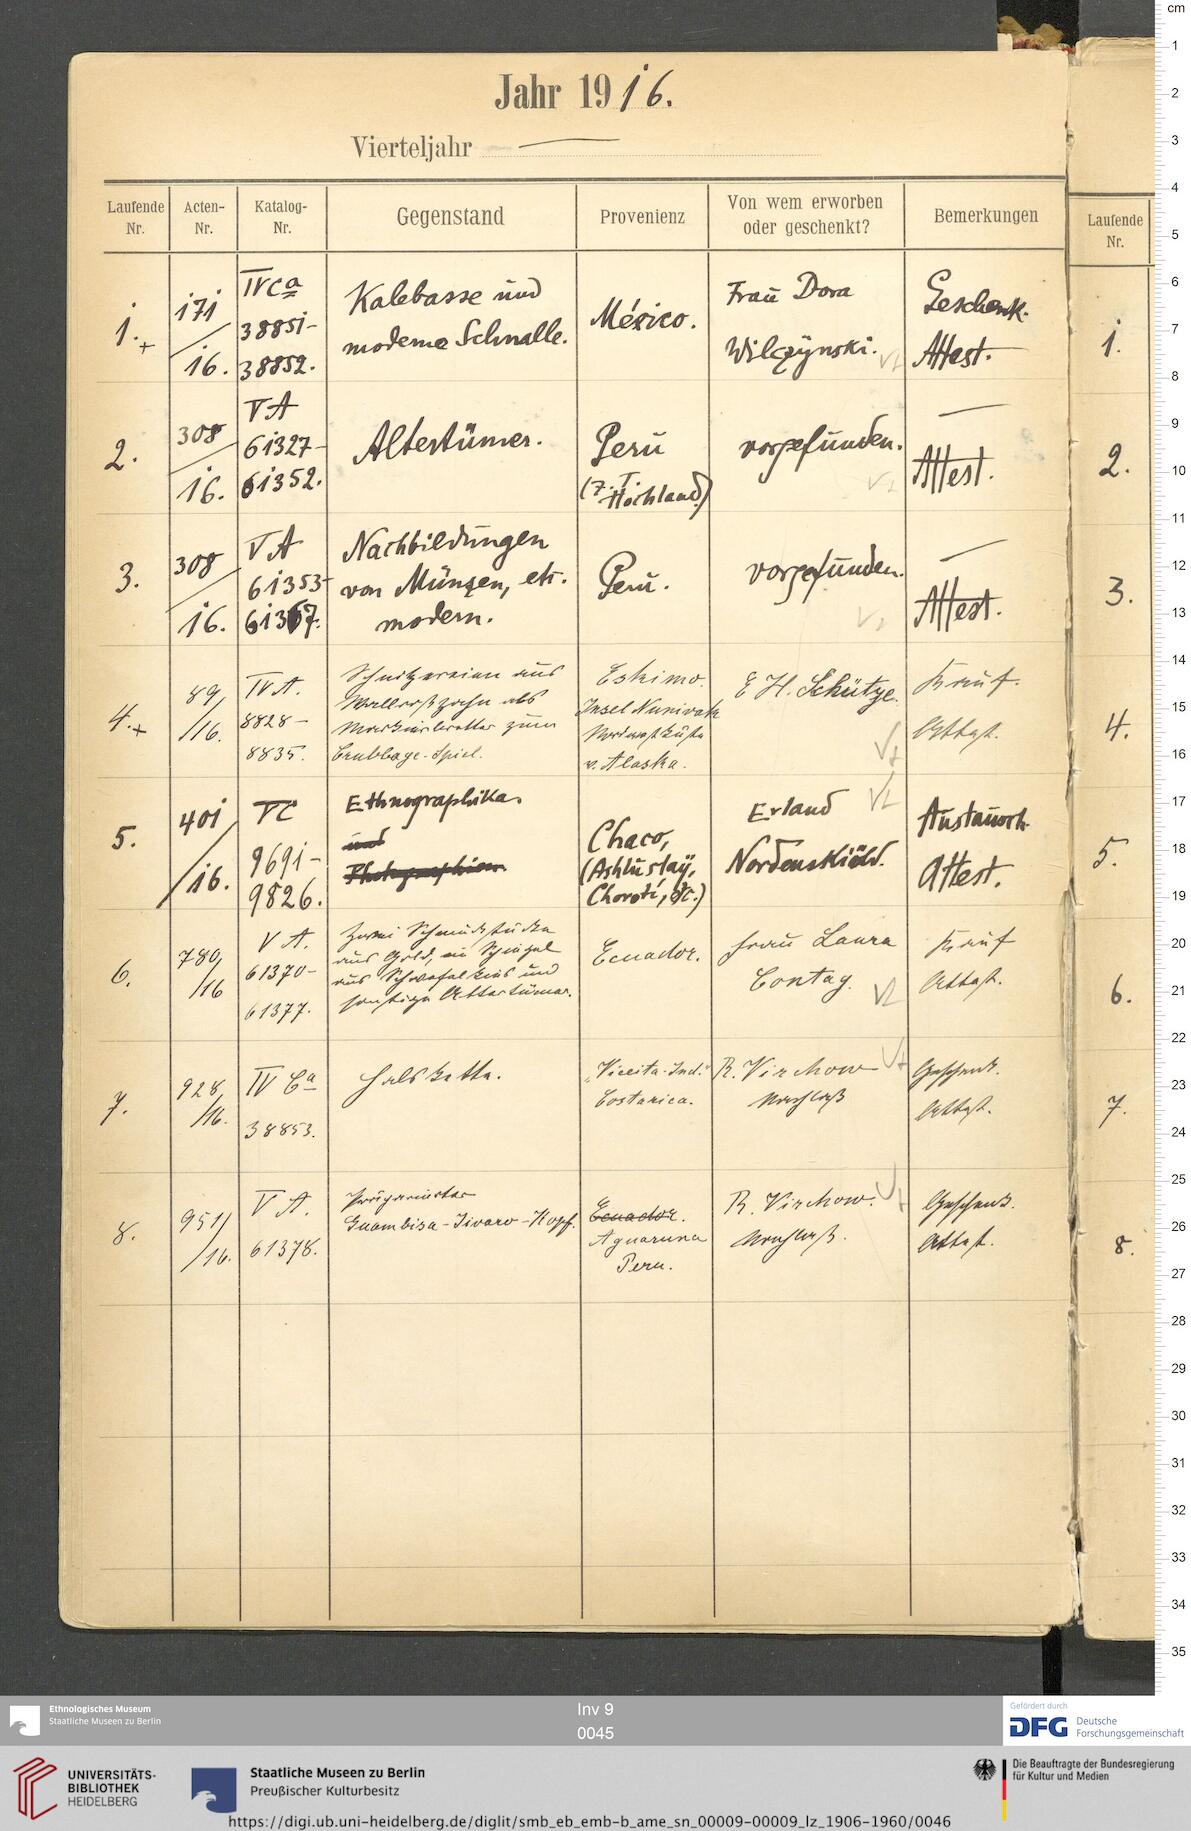 Jahr 1916.
Vierteljahr —
Laufende Nr.
Acten-Nr.
Katalog-Nr.
Gegenstand
Provenienz
Von wem erworben oder geschenkt?
Bemerkungen
Laufende Nr.
1.+
171/16.
IV Ca
38851-
38852.
Kalebasse und
moderne Schnalle.
México.
Frau Dora
Wilczynski.
Geschenk.
Attest.
1.
2.
308/16.
VA
61327-
61352.
Altertümer.
Peru
(z. T.
Hochland)
vorgefunden.
—
Attest.
2.
3.
308/16.
VA
61353-
61367.
Nachbildungen
von Münzen, etc.
modern.
Peru.
vorgefunden.
—
Attest.
3.
4.+
89/16.
IV A.
8828-
8835.
Schnitzereien aus
Wallroßzahn als
Markierbretter zum
Crubbage-Spiel.
Eskimo.
Insel Nunivak
Nordwestküste
v. Alaska.
E H. Schütze.
Kauf.
Attest.
4.
5.
401/16.
VC
9691-
9826.
Ethnographika.
und
Photographien
Chaco,
(Ashluslay,
Choroti, etc.)
Erland
Nordenskiöld.
Austausch.
Attest.
5.
6.
780/16
V A.
61370-
61377.
Zwei Schmuckstücke
aus Gold, ein Spiegel
aus Schwefelkies und
sonstige Altertümer.
Ecuador.
Frau Laura
Contag.
Kauf
Attest.
6.
7.
928/16.
IV Ca
38853.
Halskette.
"Viceita-Ind."
Costarica.
R. Virchow
Nachlaß
Geschenk.
Attest.
7.
8.
951/16.
V A.
61378.
Präparierter
Guambisa-Jivaro-Kopf.
Ecuador.
Aguaruna
Peru.
R. Virchow.
Nachlaß.
Geschenk.
Attest.
8.
cm
1
2
3
4
5
6
7
8
9
10
11
12
13
14
15
16
17
18
19
20
21
22
23
24
25
26
27
28
29
30
31
32
33
34
35
Ethnologisches Museum
Staatliche Museen zu Berlin
Inv 9
0045
Gefördert durch
DFG Deutsche
Forschungsgemeinschaft
UNIVERSITÄTS-
BIBLIOTHEK
HEIDELBERG
Staatliche Museen zu Berlin
Preußischer Kulturbesitz
Die Beauftragte der Bundesregierung
für Kultur und Medien
https://digi.ub.uni-heidelberg.de/diglit/smb_eb_emb-b_ame_sn_00009-00009_lz_1906-1960/0046